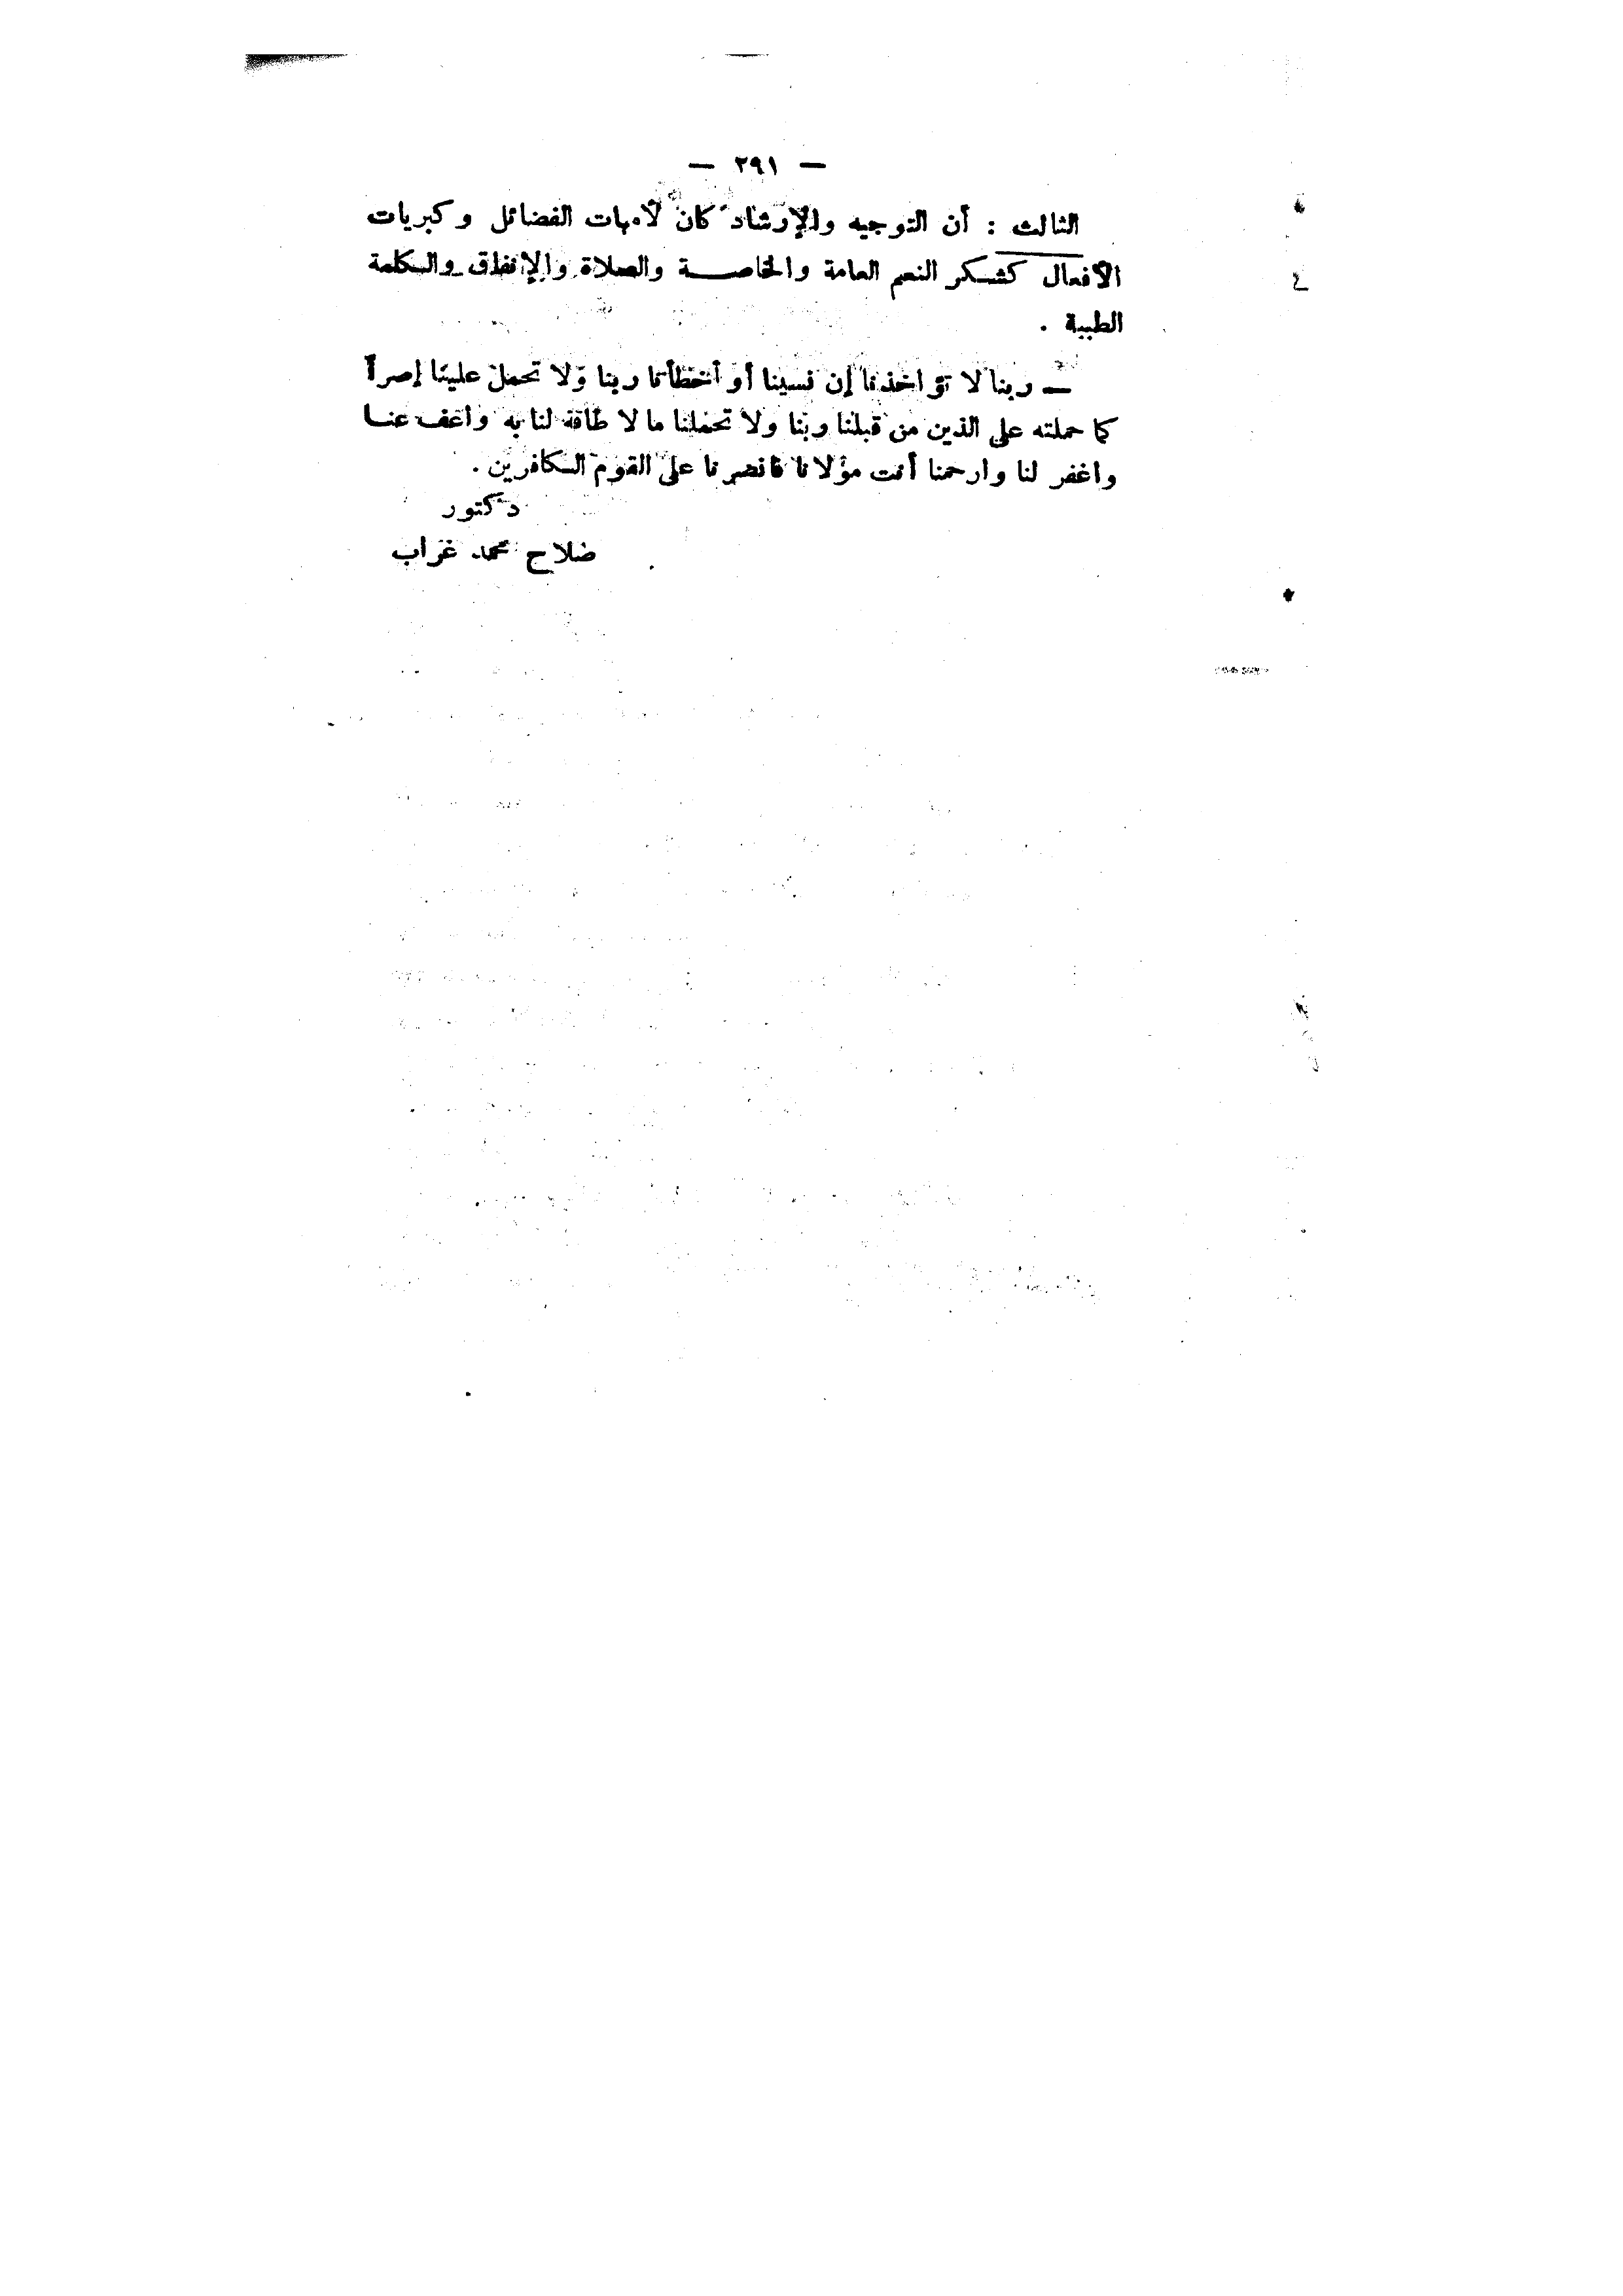 — ٢٩١ —
الثالث : أن التوجيه والإرشاد كان لأمهات الفضائل وكبريات
الأفعال كشكر النعم العامة والخاصة والصلاة والإنفاق والكلمة
الطيبة .
— ربنا لا تؤاخذنا إن نسينا أو أخطأنا ربنا ولا تحمل علينا إصراً
كما حملته على الذين من قبلنا ربنا ولا تحملنا ما لا طاقة لنا به واعف عنا
واغفر لنا وارحمنا أنت مولانا فانصرنا على القوم الكافرين .
دكتور
صلاح محمد غراب